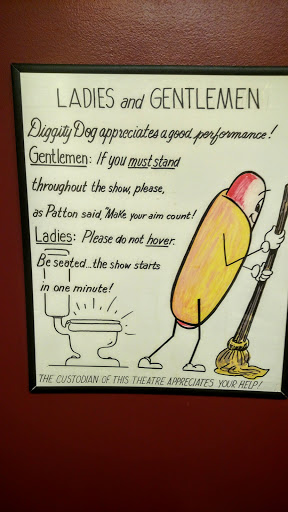 LADIES and GENTLEMEN
Diggity Dog appreciates a good performance!
Gentlemen: If you must stand
throughout the show, please,
as Patton said, "Make your aim count!
Ladies: Please do not hover.
Be seated...the show starts
in one minute!
THE CUSTODIAN OF THIS THEATRE APPRECIATES YOUR HELP!